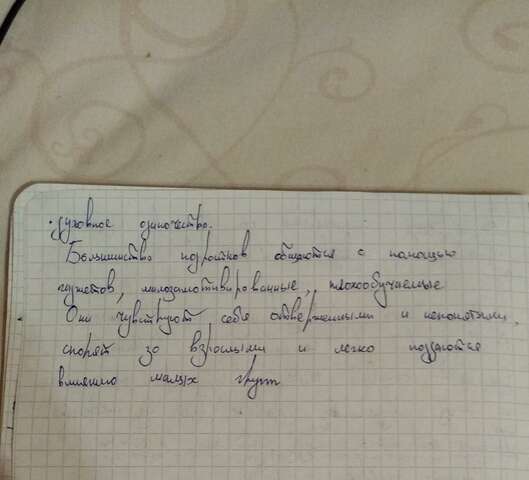 · духовное одиночество.
Большинство подростков общаются с помощью
гаджетов, малозамотивированные, плохообучаемые
Они чувствуют себя отверженными и непонятыми,
спорят со взрослыми и легко поддаются
влиянию малых групп